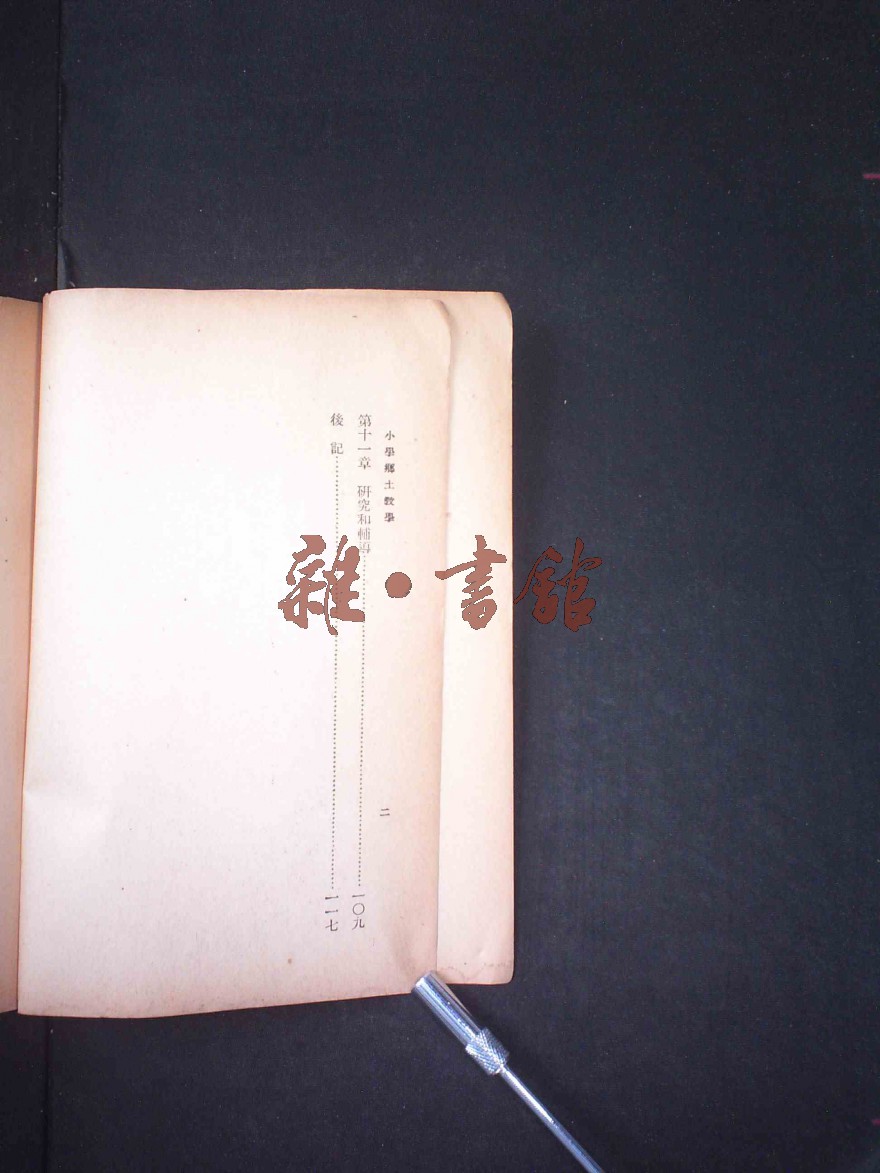 小學鄉土教學
二
第十一章 研究和輔導……一〇九
後記……一一七
雜·書館